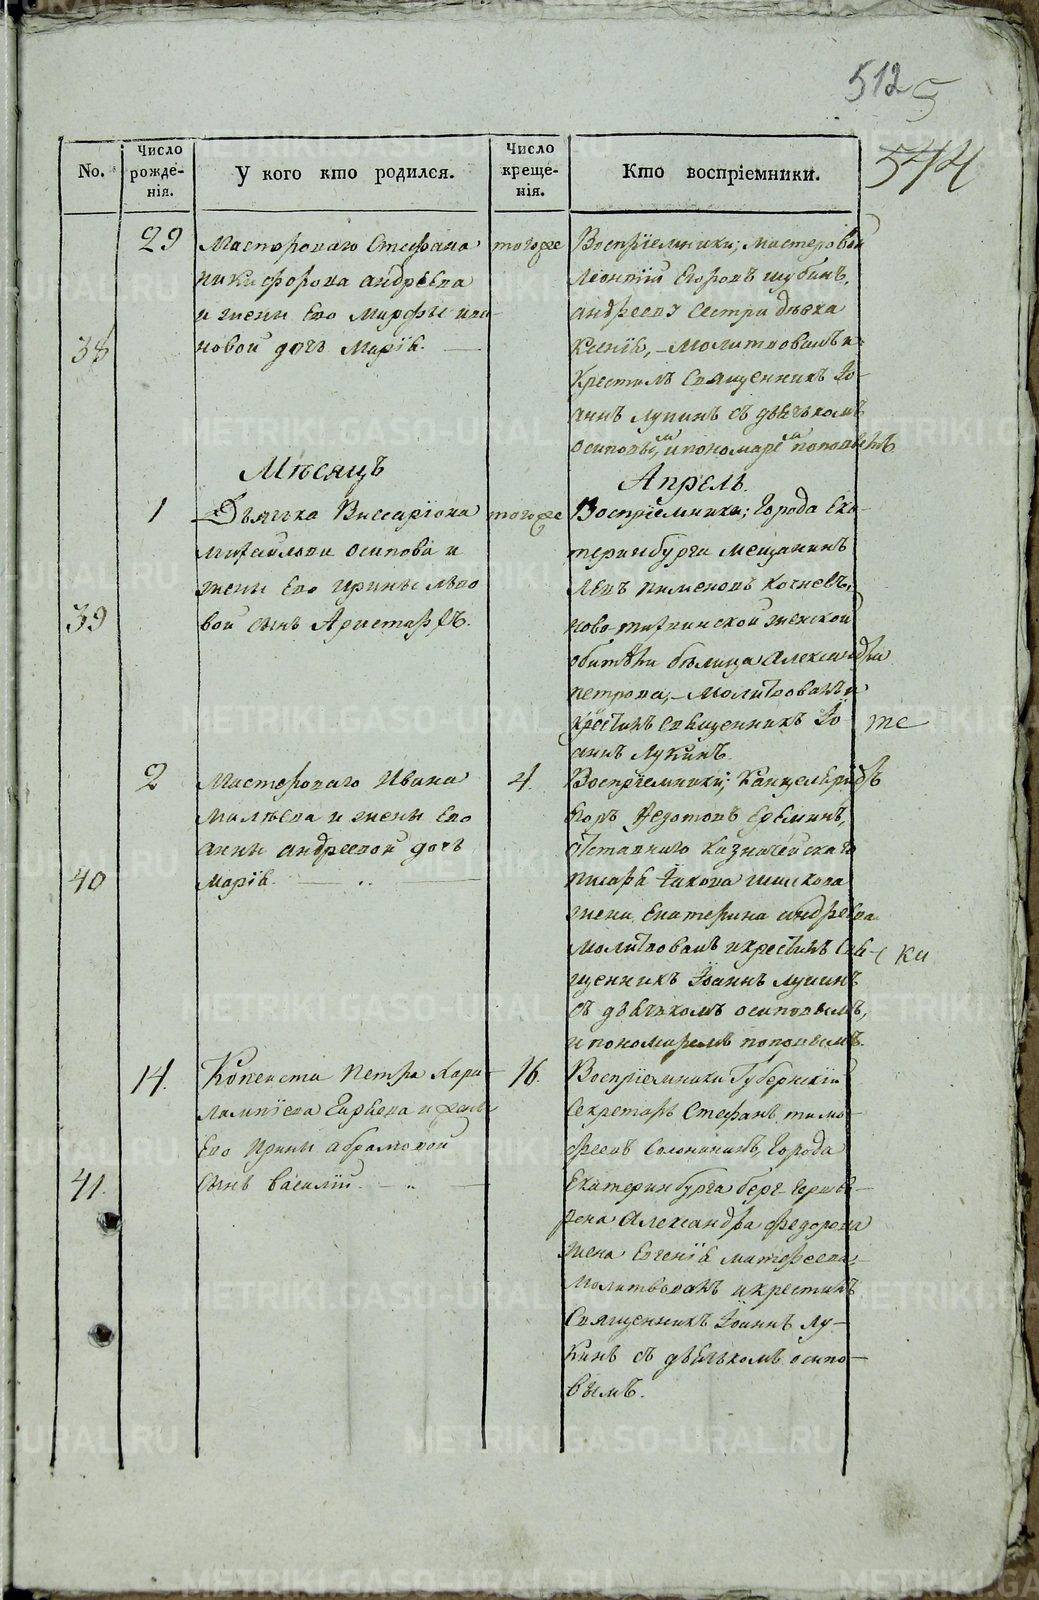 512
5
544
No.
Число рожденія.
У кого кто родился.
Число крещенія.
Кто воспріемники.
38
29
Мастероваго Стефана
Никифорова Андреева
и жены Его Марфы Ива-
новой дочь Марія.
тогоже
Воспріемники; мастеровой
Леонтій Егоровъ Шубинъ,
Андреева Сестра дѣвка
Ксенія, – Молитвовалъ и
Крестилъ Священникъ Іо-
аннъ Лукинъ съ дьячкомъ
Осиповымъ, и пономаремъ Поповымъ
Мѣсяцъ
Апрель.
39
1
Дьячка Виссаріона
Михайлова Осипова и
жены Его Ирины Льво
вой сынъ Аристархъ.
тогоже
Воспріемники; Города Ека-
теринбурга мещанинъ
Левъ Пименовъ Кочневъ,
Ново-тихвинской женской
обители бѣлица Александра
Петрова, – Молитвовалъ и
Крестилъ Священникъ Іо
аннъ Лукинъ.
те
40
2
Мастероваго Ивана
Малѣева и жены Его
Анны Андреевой дочь
Марія.
4.
Воспріемники; Канцеляристъ
Егоръ Федотовъ Ереминъ,
отставнаго Казначейскаго
писаря Іакова Шишкова
жена Екатерина Андреева
Молитвовалъ и крестилъ Свя-
щенникъ Іоаннъ Лукинъ
съ дьячкомъ Осиповымъ,
и пономаремъ Поповымъ.
ки
41.
14.
Копеиста Петра Хара-
лампіева и жены
Его Ирины Абрамовой
сынъ Василій.
16.
Воспріемники Губернскій
Секретарь Стефанъ Тимо-
феевъ Города
Екатеринбурга берг-гешво-
рена Александра Федорова
жена Евгенія Матфеева.
Молитвовалъ и крестилъ
Священникъ Іоаннъ Лу-
кинъ съ дьячкомъ Осипо-
вымъ.
METRIKI.GASO-URAL.RU